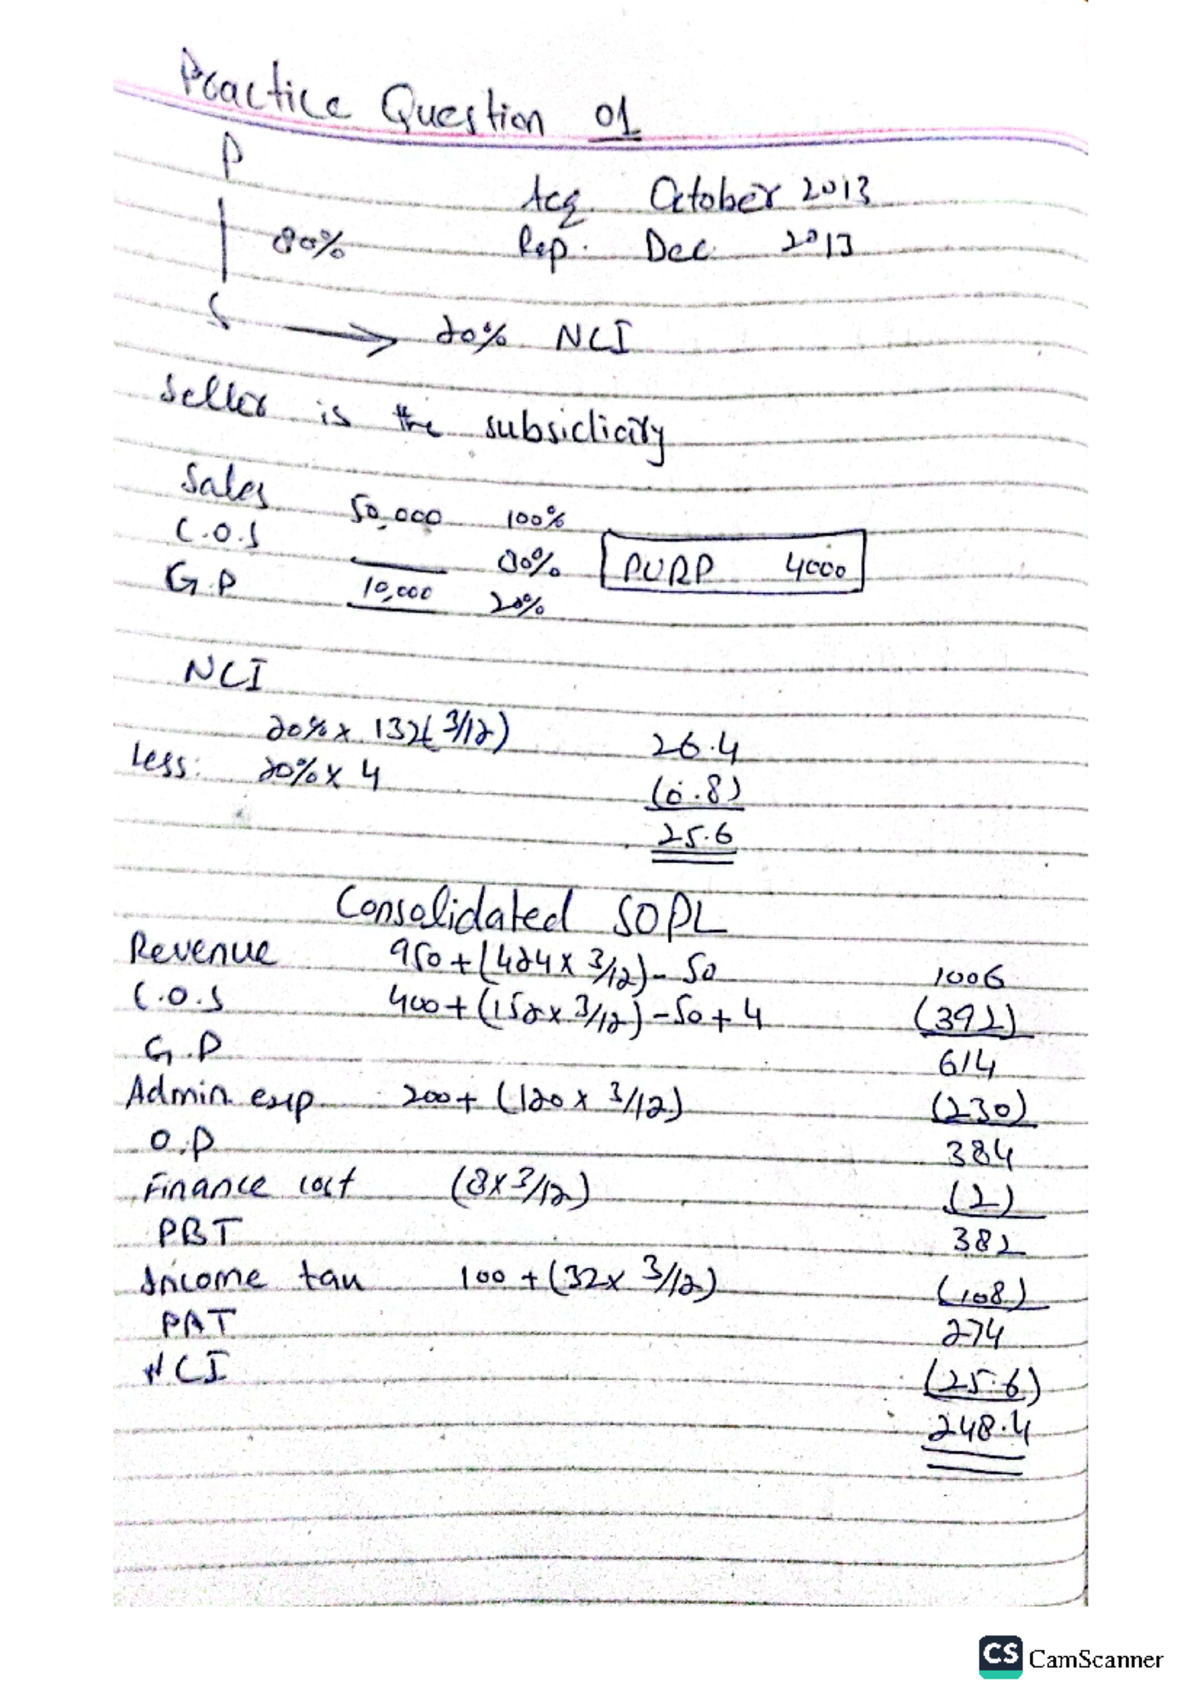 Practice Question 01
P
Acq. October 2013
80%
Rep. Dec. 2013
S → 20% NCI
Seller is the subsidiary
Sales 50,000 100%
C.O.S 80% PURP 4000
G.P 10,000 20%
NCI
20% x 132(3/12) 26.4
Less: 20% x 4 (0.8)
25.6
Consolidated SOPL
Revenue 950 + (424 x 3/12) - 50 1006
C.O.S 400 + (152 x 3/12) - 50 + 4 (392)
G.P 614
Admin. exp 200 + (120 x 3/12) (230)
O.P 384
Finance cost (8 x 3/12) (2)
PBT 382
Income tax 100 + (32 x 3/12) (108)
PAT 274
NCI (25.6)
248.4
CS CamScanner